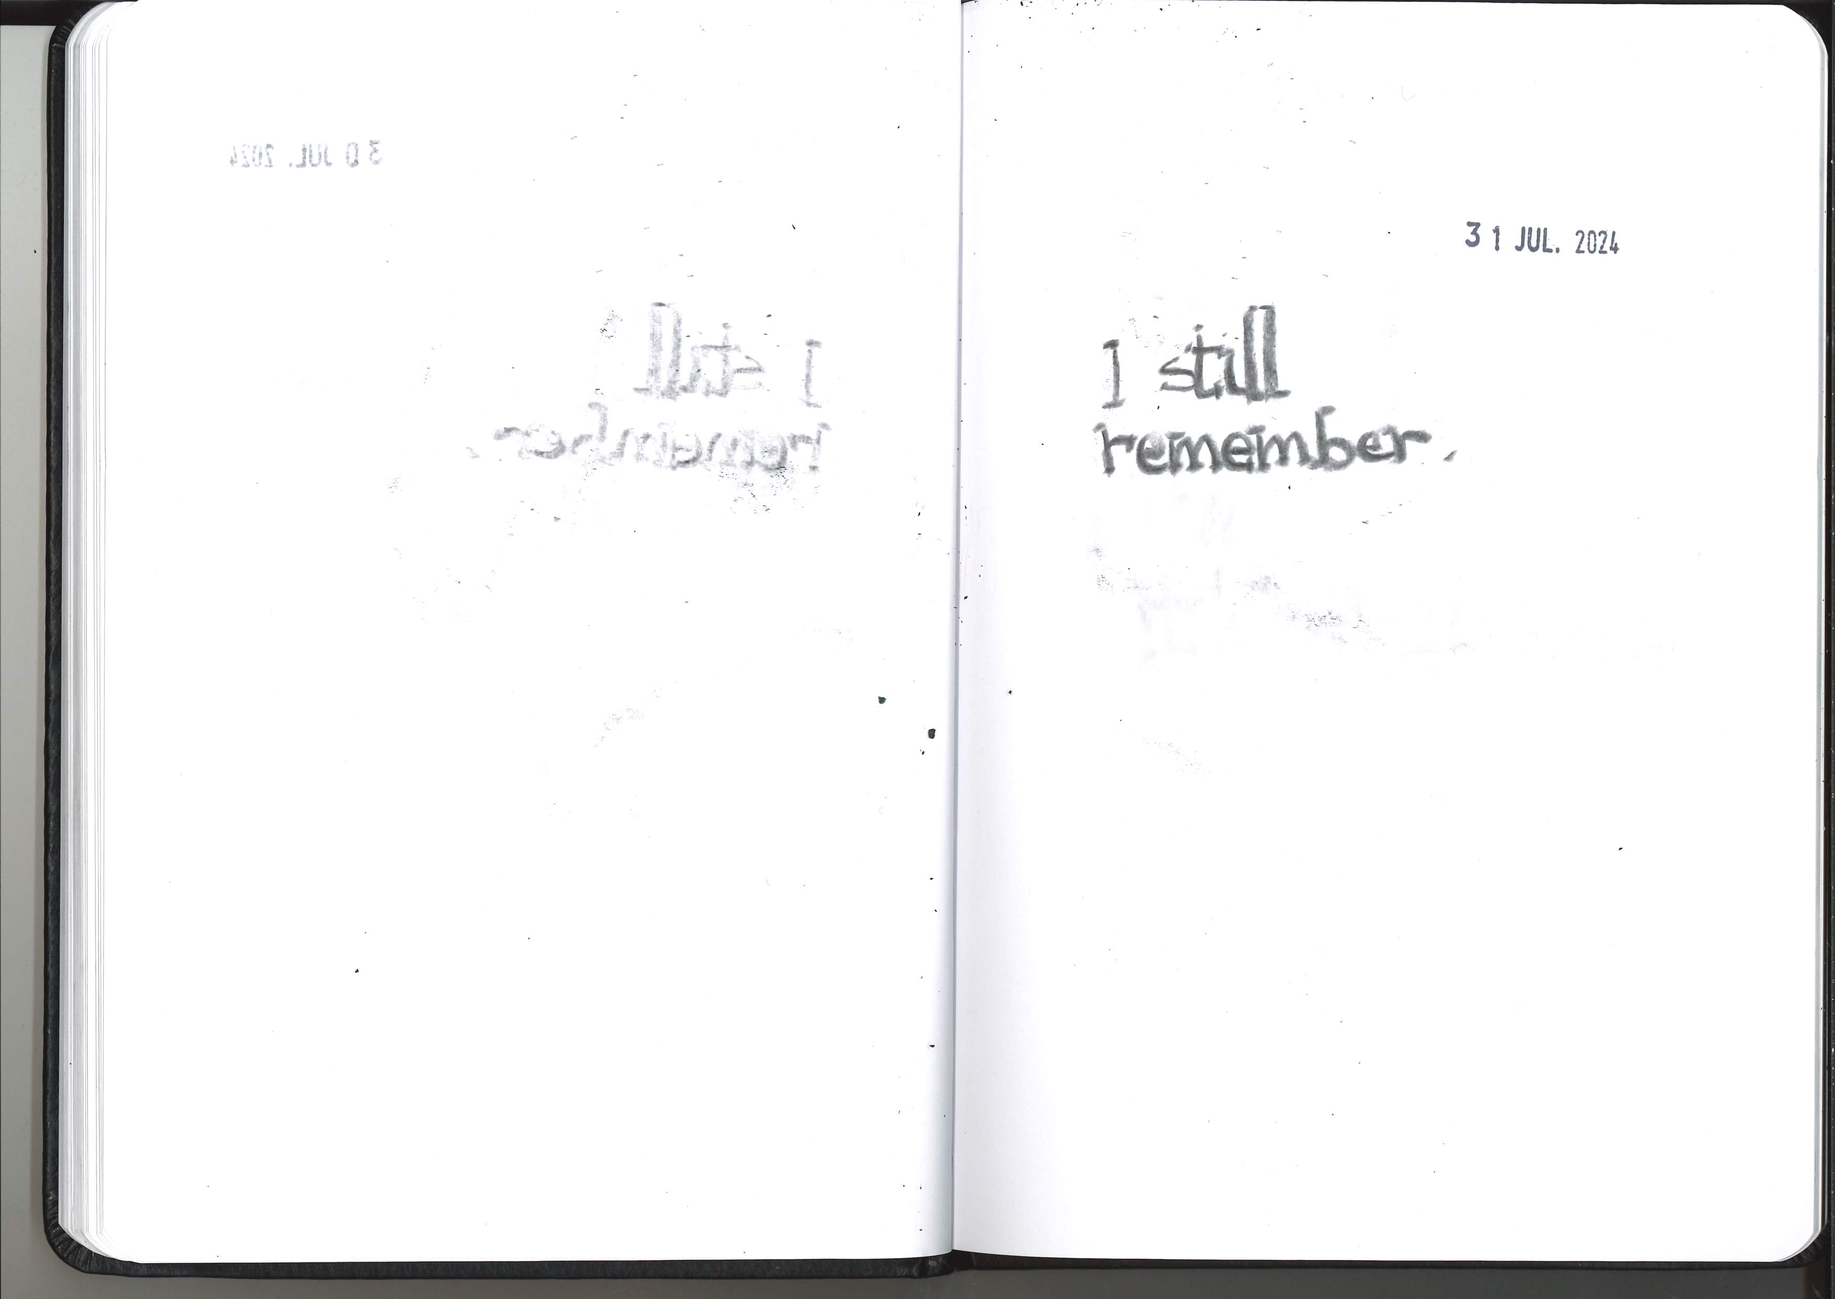 30 JUL. 2024
I still
remember.
31 JUL. 2024
I still
remember.